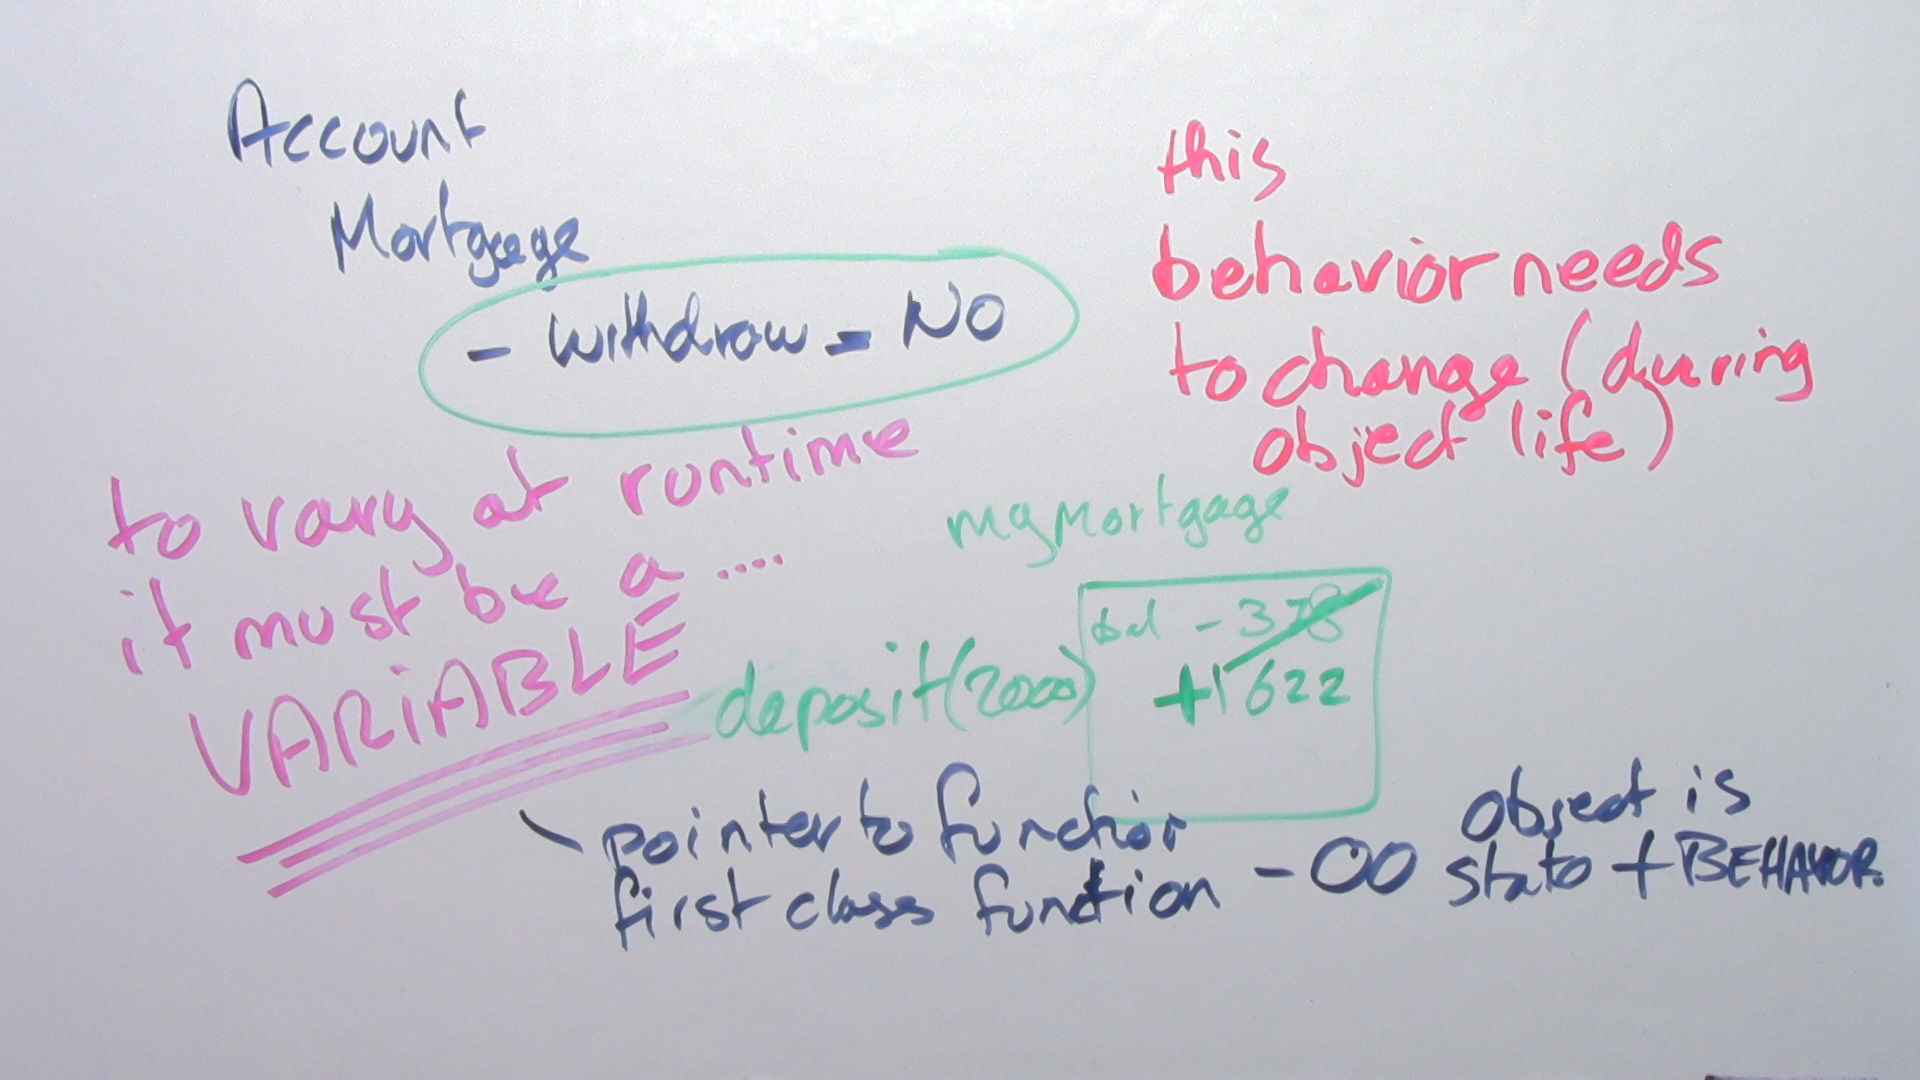 Account
Mortgage
- withdraw = NO
this
behavior needs
to change (during
object life)
to vary at runtime
it must be a ....
VARiABLE
myMortgage
bal - 378
+1622
deposit(2000)
pointer to function
first class function - OO
object is
state + BEHAVIOR.